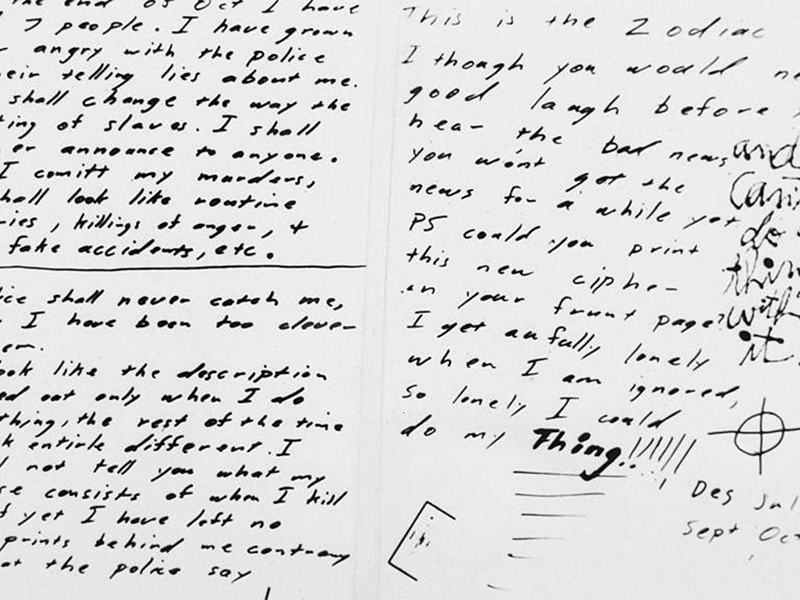 the end of Oct I have
7 people. I have grown
angry with the police
their telling lies about me.
shall change the way the
ting of slaves. I shall
er announce to anyone.
I comitt my murders,
hall look like routine
ries, killings of anger, +
fake accidents, etc.
ice shall never catch me,
I have been too clever
em.
ook like the description
ed out only when I do
thing, the rest of the time
k entirle different. I
l not tell you what my
se consists of when I kill
f yet I have left no
prints behind me contrary
at the police say
This is the Zodiac
I though you would ne
good laugh before y
hear the bad news
you won't get the
news for a while yet
PS could you print
this new cipher
in your frunt page?
I get awfully lonely
when I am ignored,
so lonely I could
do my Thing!!!!!!
and
Can
do
thin
with
it.
Des Jul
Sept Oct